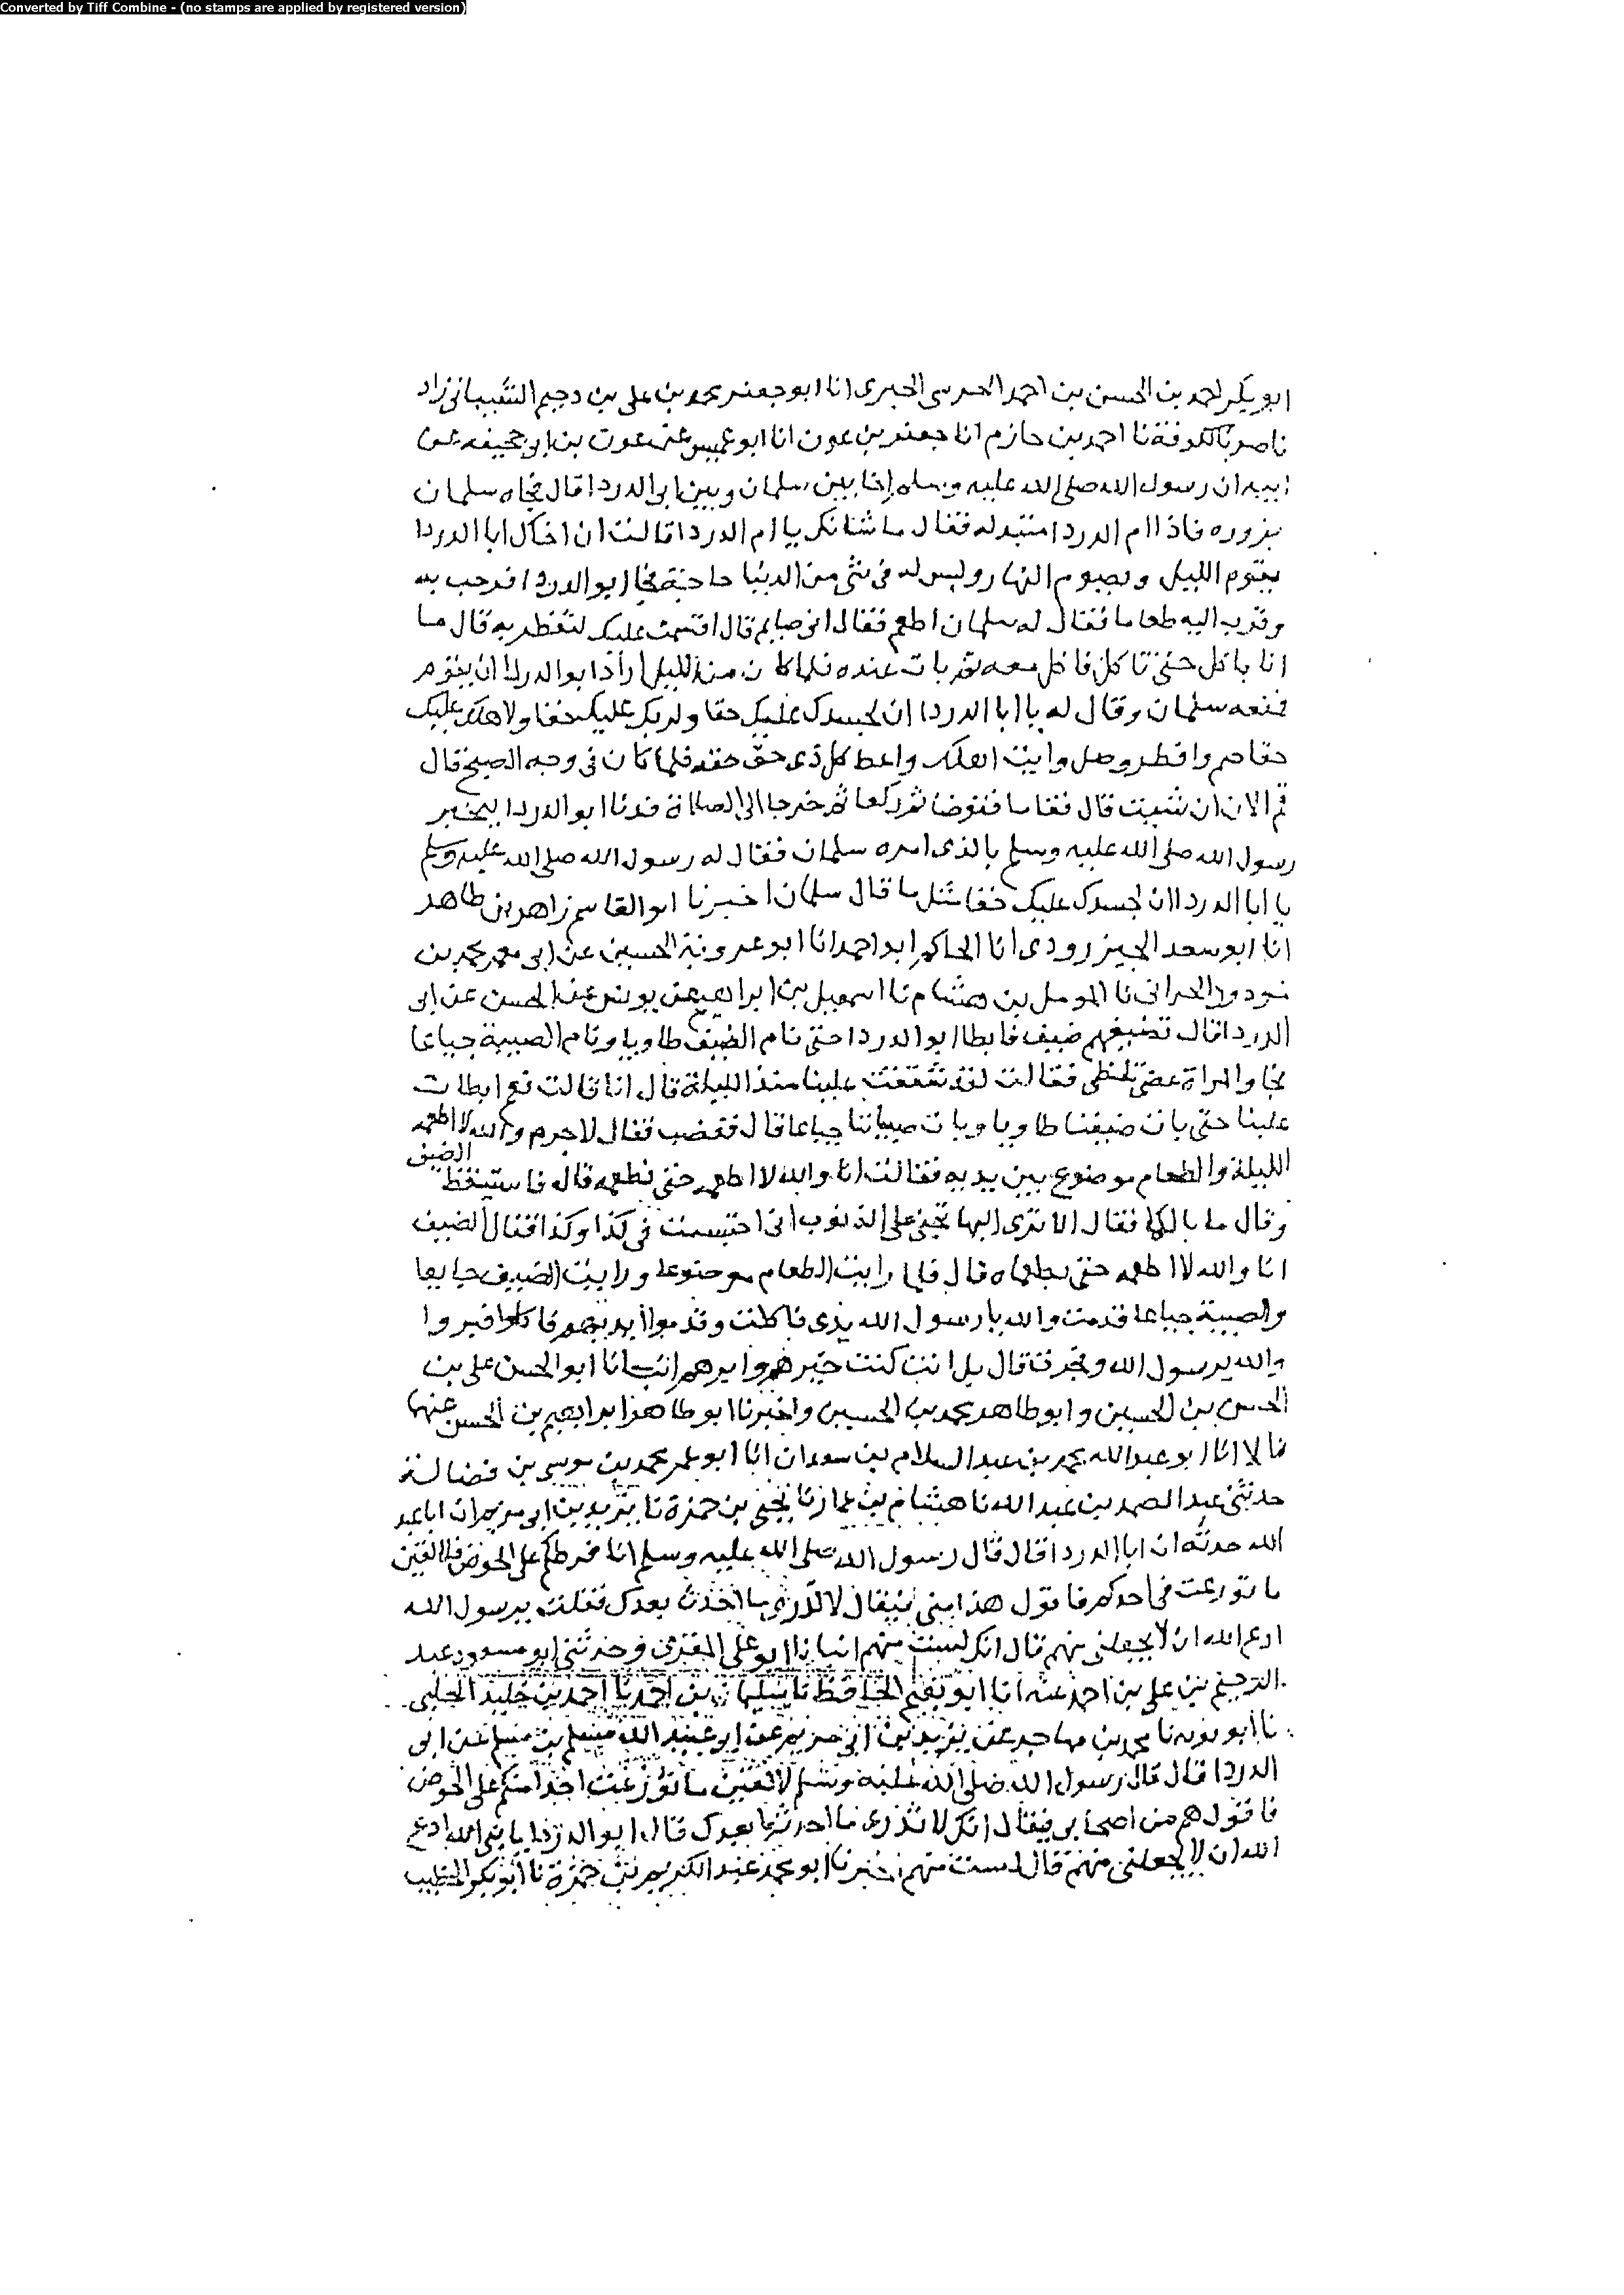 Converted by Tiff Combine - (no stamps are applied by registered version)
ابو بكر احمد بن الحسن بن احمد الحرسى الحيرى انا ابو جعفر محمد بن على بن دحيم الشيبانى زاد
ناصر بالكوفة نا احمد بن حازم انا جعفر بن عون انا ابو عميس عن عون بن ابى جحيفه عن
ابيه ان رسول الله صلى الله عليه وسلم اخا بين سلمان وبين ابى الدردا قال فجاه سلمان
يزوره فاذا ام الدردا متبدله فقال ما شانك يا ام الدردا قالت ان اخاك ابا الدردا
يقوم الليل ويصوم النهار وليس له فى شى من الدنيا حاجة فجا ابو الدردا فرحب به
وقرب اليه طعاما فقال له سلمان اطعم فقال انى صايم قال اقسمت عليك لتفطر به قال ما
انا باكل حتى تاكل فاكل معه ثم بات عنده فلما كان من الليل اراد ابو الدردا ان يقوم
فمنعه سلمان وقال له يا ابا الدردا ان لجسدك عليك حقا ولربك عليك حقا ولاهلك عليك
حقا صم وافطر وصل وايت اهلك واعط كل ذى حق حقه فلما كان فى وجه الصبح قال
قم الان ان شيت قال فقاما فتوضا ثم ركعا ثم خرجا الى الصلاة فدنا ابو الدردا ليخبر
رسول الله صلى الله عليه وسلم بالذى امره سلمان فقال له رسول الله صلى الله عليه وسلم
يا ابا الدردا ان لجسدك عليك حقا مثل ما قال سلمان اخبرنا ابو القاسم زاهر بن طاهر
انا ابو سعد الجنزرودى انا الحاكم ابو احمد انا ابو عروبة الحسين عن ابى معمر محمد بن
مودود الحرانى نا المومل بن هشام نا اسمعيل بن ابراهيم عن يونس عن الحسن عن ابى
الدردا قال تضيفهم ضيف فابطا ابو الدردا حتى نام الضيف طاويا ونام الصبية جياعا
فجا والمراة غضبى تلظى فقالت لقد شققت علينا منذ الليلة قال انا قالت نعم ابطات
علينا حتى بات ضيفنا طاويا وبات صبياننا جياعا قال فغضب فقال لا جرم والله لا اطعمه
الليلة والطعام موضوع بين يديه فقالت انا والله لا اطعمه حتى تطعمه قال فاستيقظ الضيف
وقال ما بالكما فقال الا ترى اليها تجنى على الذنوب انى احتبست فى كذا وكذا فقال الضيف
انا والله لا اطعمه حتى تطعماه قال فلما رايت الطعام موضوعا ورايت الضيف جايعا
والصبية جياعا قدمت والله يا رسول الله يدى فاكلت وقدموا ايديهم فاكلوا فبروا
والله يرسول الله وفجرت قال بل انت كنت خيرهم وابرهم انبانا ابو الحسن على بن
الحسن بن الحسين وابو طاهر محمد بن الحسين واخبرنا ابو طاهر ابراهيم بن الحسن عنهما
قالا انا ابو عبد الله محمد بن عبد السلام بن سعدان انا ابو عمر محمد بن موسى بن فضالة
حدثنى عبد الصمد بن عبد الله نا هشام بن عمار نا يحيى بن حمزة نا يزيد بن ابى مريم ان ابا عبيد
الله حدثه ان ابا الدردا قال قال رسول الله صلى الله عليه وسلم انا فرطكم على الحوض فلا الفين
ما نوزعت فى احدكم فاقول هذا منى فيقال لا تدرى ما احدث بعدك فقلت يرسول الله
ادع الله ان لا يجعلنى منهم قال انك لست منهم انبانا ابو على المقرى وحدثنى ابو مسعود عبد
الرحيم بن على بن احمد عنه انا ابو نعيم الحافظ نا سليمان بن احمد نا احمد بن خليد الحلبى
نا ابو توبه نا محمد بن مهاجر عن يزيد بن ابى مريم عن ابى عبيد الله مسلم بن مسلم عن ابى
الدردا قال قال رسول الله صلى الله عليه وسلم لا الفين ما نوزعت احدا منكم على الحوض
فاقول هم من اصحابى فيقال انك لا تدرى ما احدثوا بعدك قال ابو الدردا يا نبى الله ادع
الله ان لا يجعلنى منهم قال لست منهم اخبرنا ابو محمد عبد الكريم بن حمزة نا ابو بكر الخطيب